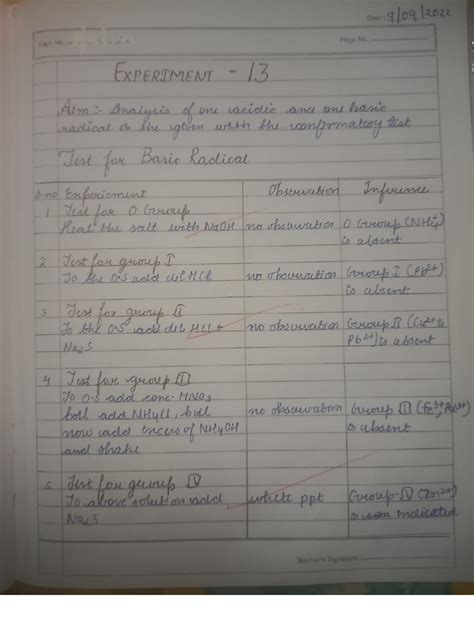 Date: 9/09/2022
Expt. No.
Page No.
EXPERIMENT - 13
Aim:- Analysis of one acidic and one basic
radical in the given with the confirmatory test
Test for Basic Radical
S.no Experiment Observation Inference
1 Test for O Group
Heat the salt with NaOH no observation O Group (NH4+)
is absent
2 Test for group I
To the O.S add dil HCl no observation Group I (Pb2+)
is absent
3 Test for group II
To the O.S add dil HCl + no observation Group II (Cu2+ &
Na2S Pb2+) is absent
4 Test for group III
To O.S add conc. HNO3
boil add NH4Cl, boil no observation Group III (Fe3+,
now add excess of NH4OH is absent
and shake
5 Test for group IV
To above solution add white ppt Group-IV (Zn2+)
Na2S is indicated
Teacher's Signature :